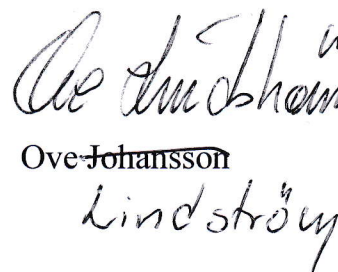 Ove Lindström
Ove Johansson
Lindström